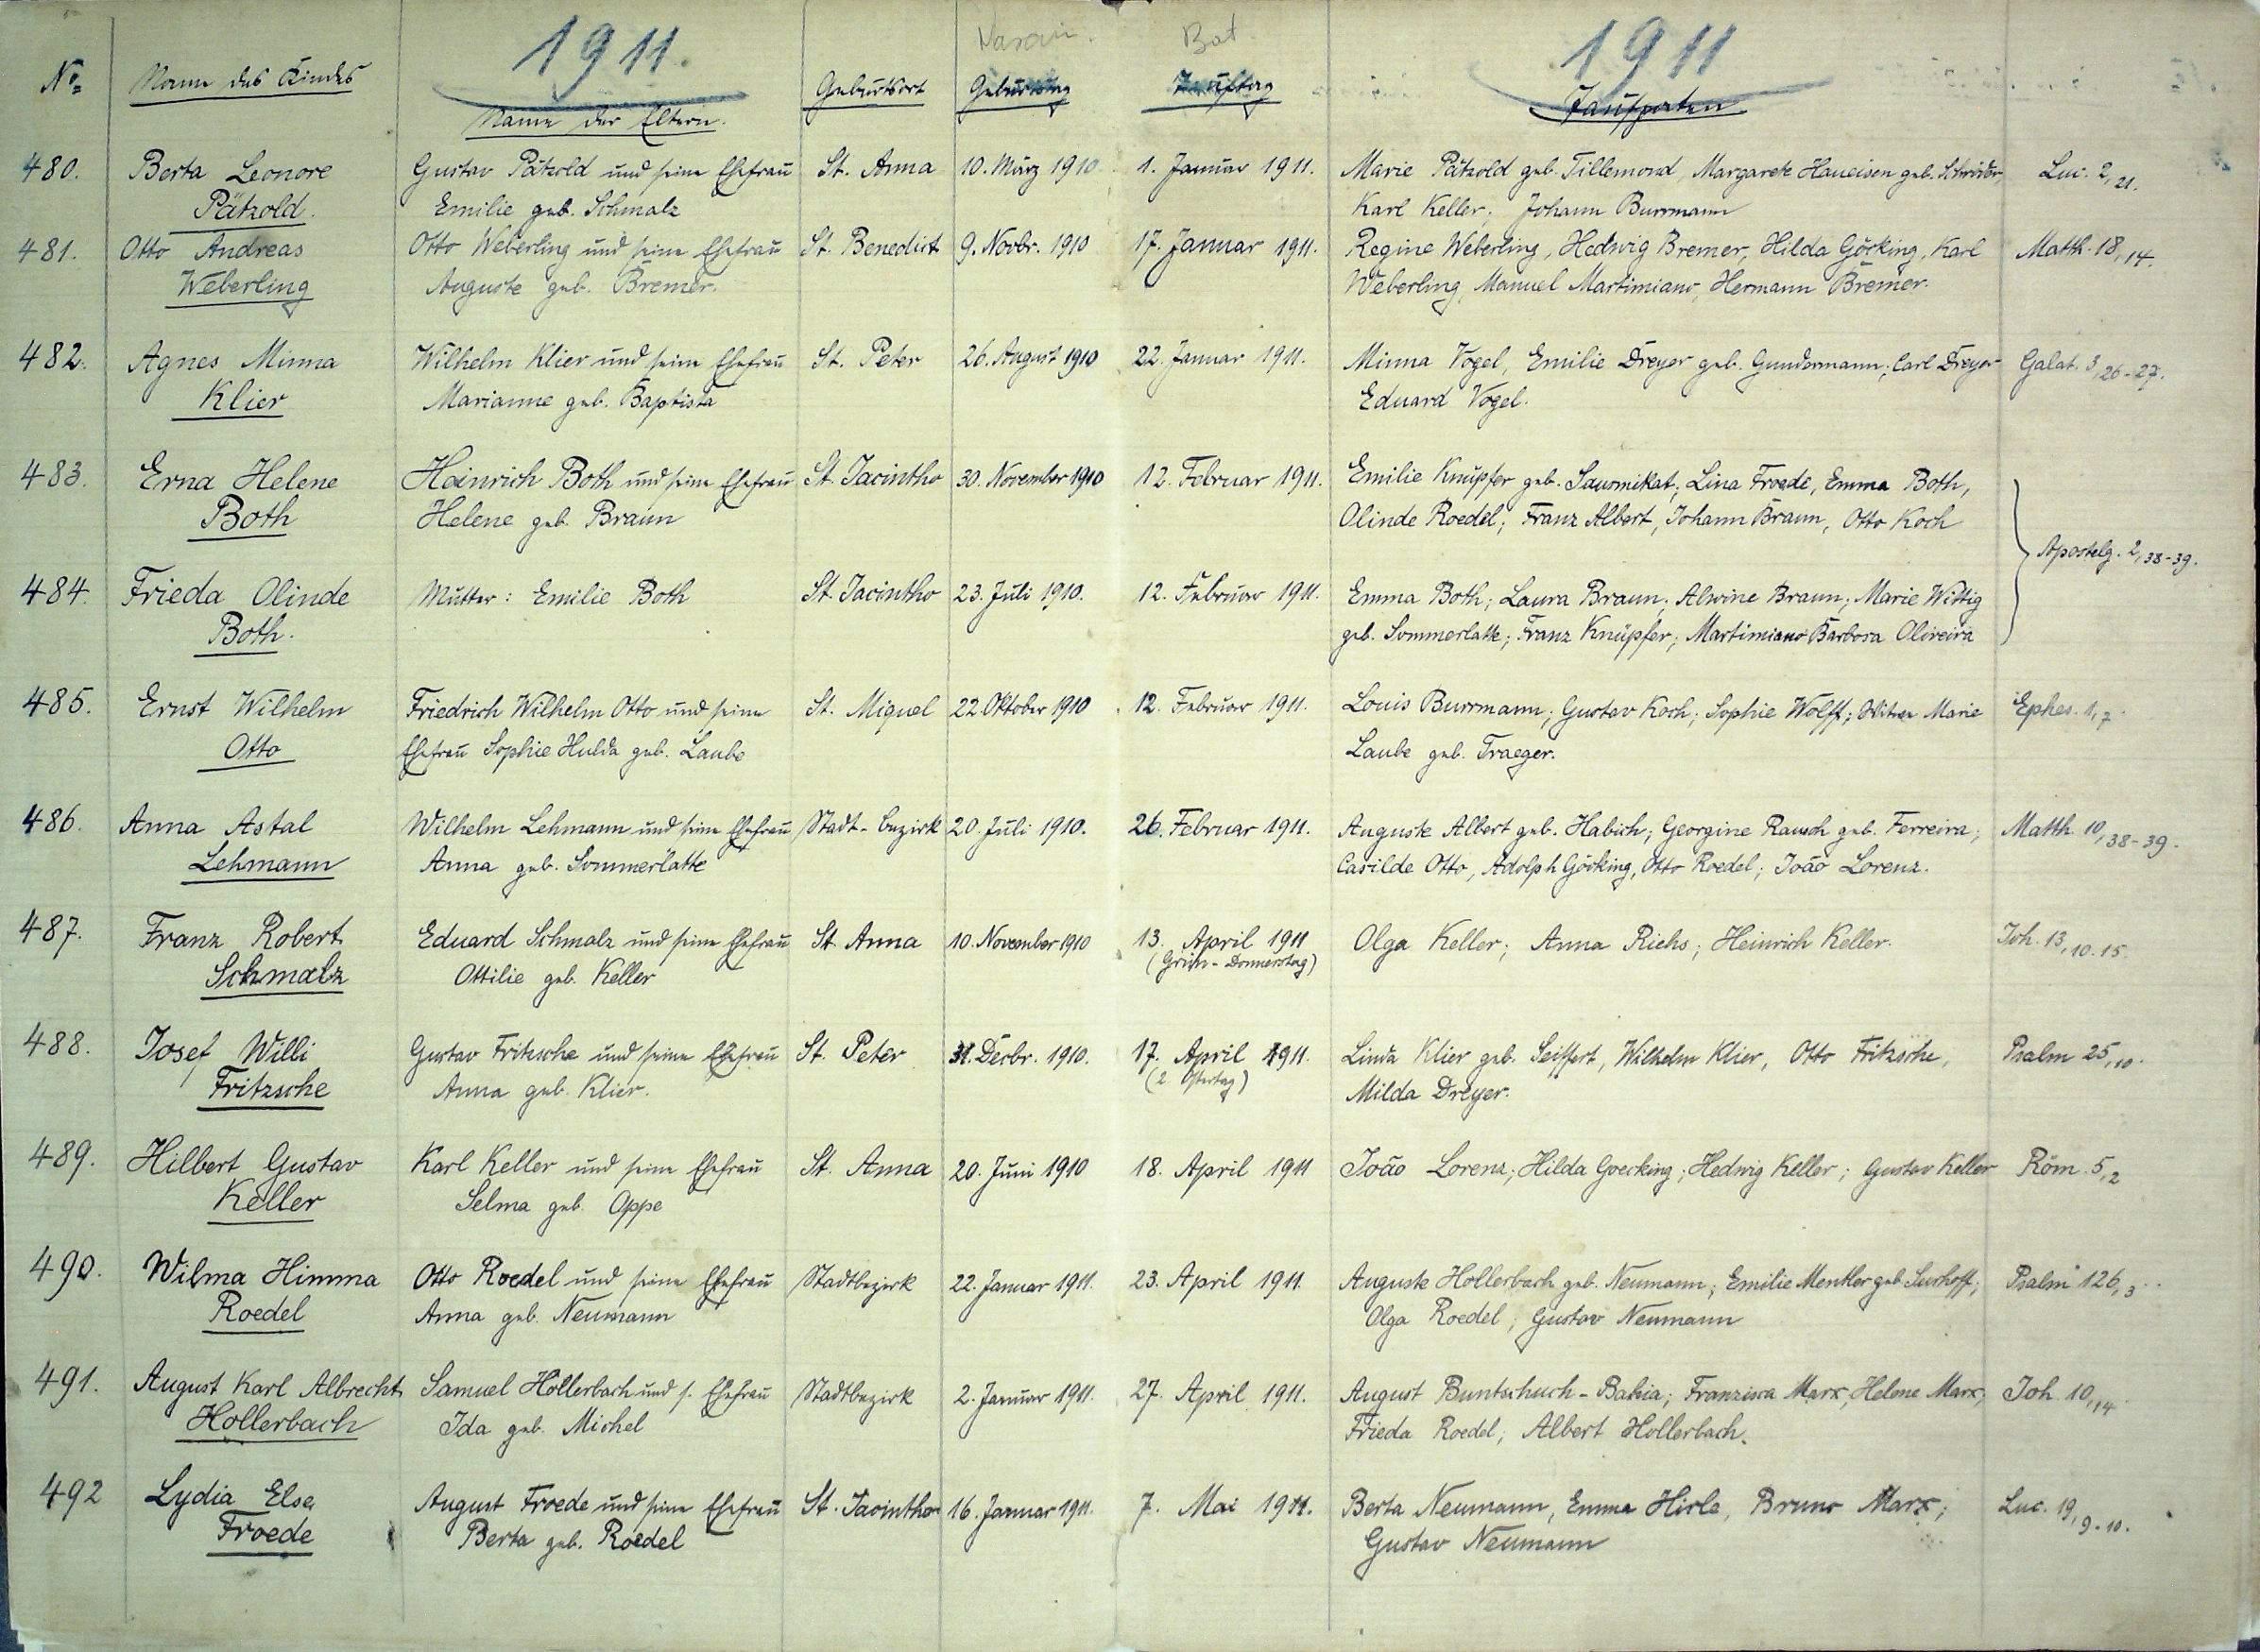 1911. Bat. 1911
No. Name des Kindes Geburtsort Geburtstag Tauftag
Name der Eltern. Taufpaten
480. Berta Leonore Gustav Pätzold und seine Ehefrau St. Anna 10. März 1910 1. Januar 1911. Marie Pätzold geb. Tillemond, Margarete Haueisen geb. Schröder, Luc. 2,21.
Pätzold. Emilie geb. Schmalz Karl Keller; Johann Burrmann
481. Otto Andreas Otto Weberling und seine Ehefrau St. Benedict 9. Novbr. 1910 17. Januar 1911. Regine Weberling, Hedwig Bremer, Hilda Göcking, Karl Matth. 18,14.
Weberling Auguste geb. Bremer. Weberling, Manuel Martimiano, Hermann Bremer.
482. Agnes Minna Wilhelm Klier und seine Ehefrau St. Peter 26. August 1910 22. Januar 1911. Minna Vogel, Emilie Dreyer geb. Gundermann; Carl Dreyer Galat. 3,26-27.
Klier Marianne geb. Baptista Eduard Vogel.
483. Erna Helene Heinrich Both und seine Ehefrau St. Jacintho 30. November 1910 12. Februar 1911. Emilie Knüpfer geb. Saurmikat; Lina Froede, Emma Both,
Both Helene geb. Braun Olinde Roedel; Franz Albert, Johann Braun, Otto Koch
Apostelg. 2,38-39.
484. Frieda Olinde Mutter: Emilie Both St. Jacintho 23. Juli 1910. 12. Februar 1911. Emma Both; Laura Braun; Alwine Braun; Marie Wittig
Both. geb. Sommerlatte; Franz Knüpfer; Martimiano Barbosa Oliveira
485. Ernst Wilhelm Friedrich Wilhelm Otto und seine St. Miguel 22. Oktober 1910 12. Februar 1911. Louis Burrmann; Gustav Koch; Sophie Wolff; Witwe Marie Ephes. 1,7.
Otto Ehefrau Sophie Hulda geb. Laube Laube geb. Traeger.
486. Anna Astal Wilhelm Lehmann und seine Ehefrau Stadt-bezirk 20. Juli 1910. 26. Februar 1911. Auguste Albert geb. Habich; Georgine Rausch geb. Ferreira; Matth. 10,38-39.
Lehmann Anna geb. Sommerlatte Casilde Otto, Adolph Göcking, Otto Roedel; João Lorenz.
487. Franz Robert Eduard Schmalz und seine Ehefrau St. Anna 10. November 1910 13. April 1911 Olga Keller; Anna Richs; Heinrich Keller. Joh. 13,10.15.
Schmalz Ottilie geb. Keller (Grün-Donnerstag)
488. Josef Willi Gustav Fritzsche und seine Ehefrau St. Peter 31. Decbr. 1910. 17. April 1911. Linda Klier geb. Seiffert, Wilhelm Klier, Otto Fritzsche, Psalm 25,10.
Fritzsche Anna geb. Klier. (2 Ostertag) Milda Dreyer.
489. Hilbert Gustav Karl Keller und seine Ehefrau St. Anna 20. Juni 1910 18. April 1911 João Lorenz; Hilda Goecking; Hedwig Keller; Gustav Keller Röm. 5,2
Keller Selma geb. Oppe
490. Wilma Himma Otto Roedel und seine Ehefrau Stadtbezirk 22. Januar 1911. 23. April 1911. Auguste Hollerbach geb. Neumann; Emilie Menkler geb. Surhoff; Psalm 126,3.
Roedel Anna geb. Neumann Olga Roedel; Gustav Neumann
491. August Karl Albrecht Samuel Hollerbach und s. Ehefrau Stadtbezirk 2. Januar 1911. 27. April 1911. August Buntschuch-Bahia; Franzisca Marx, Helene Marx, Joh. 10,14.
Hollerbach Ida geb. Michel Frieda Roedel; Albert Hollerbach.
492 Lydia Else August Froede und seine Ehefrau St. Jacintho 16. Januar 1911. 7. Mai 1911. Berta Neumann, Emma Hirle, Bruno Marx; Luc. 19,9-10.
Froede Berta geb. Roedel Gustav Neumann